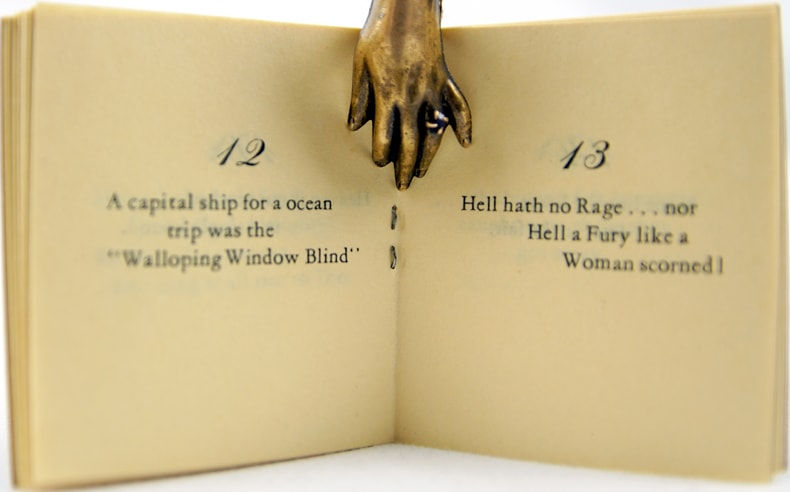 12
A capital ship for a ocean
trip was the
"Walloping Window Blind"
13
Hell hath no Rage . . . nor
Hell a Fury like a
Woman scorned!